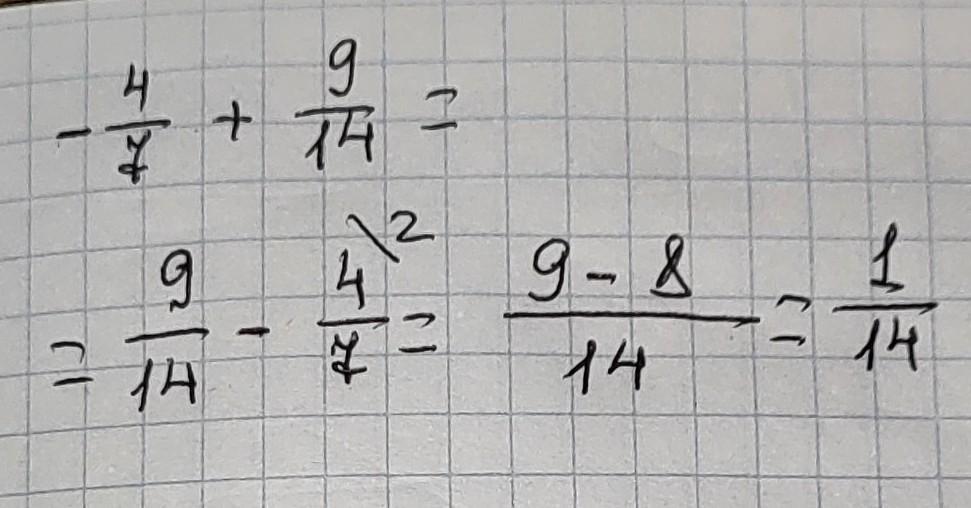 -4/7 + 9/14 =
= 9/14 - 4\2/7 = 9-8/14 = 1/14